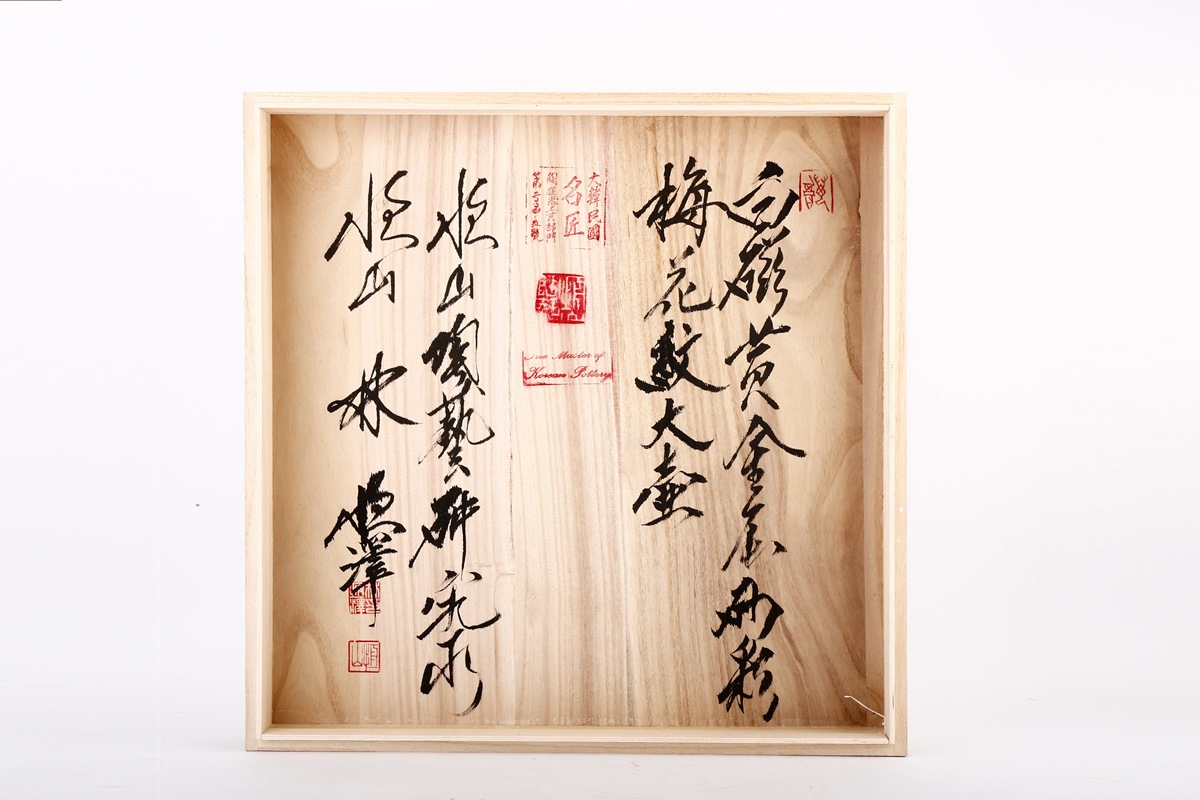 白磁黄金辰砂彩
梅花紋大壺
大韓民國
名匠
Master of
Korean Pottery
恒山陶藝研究所
恒山 林 恒澤
恒山